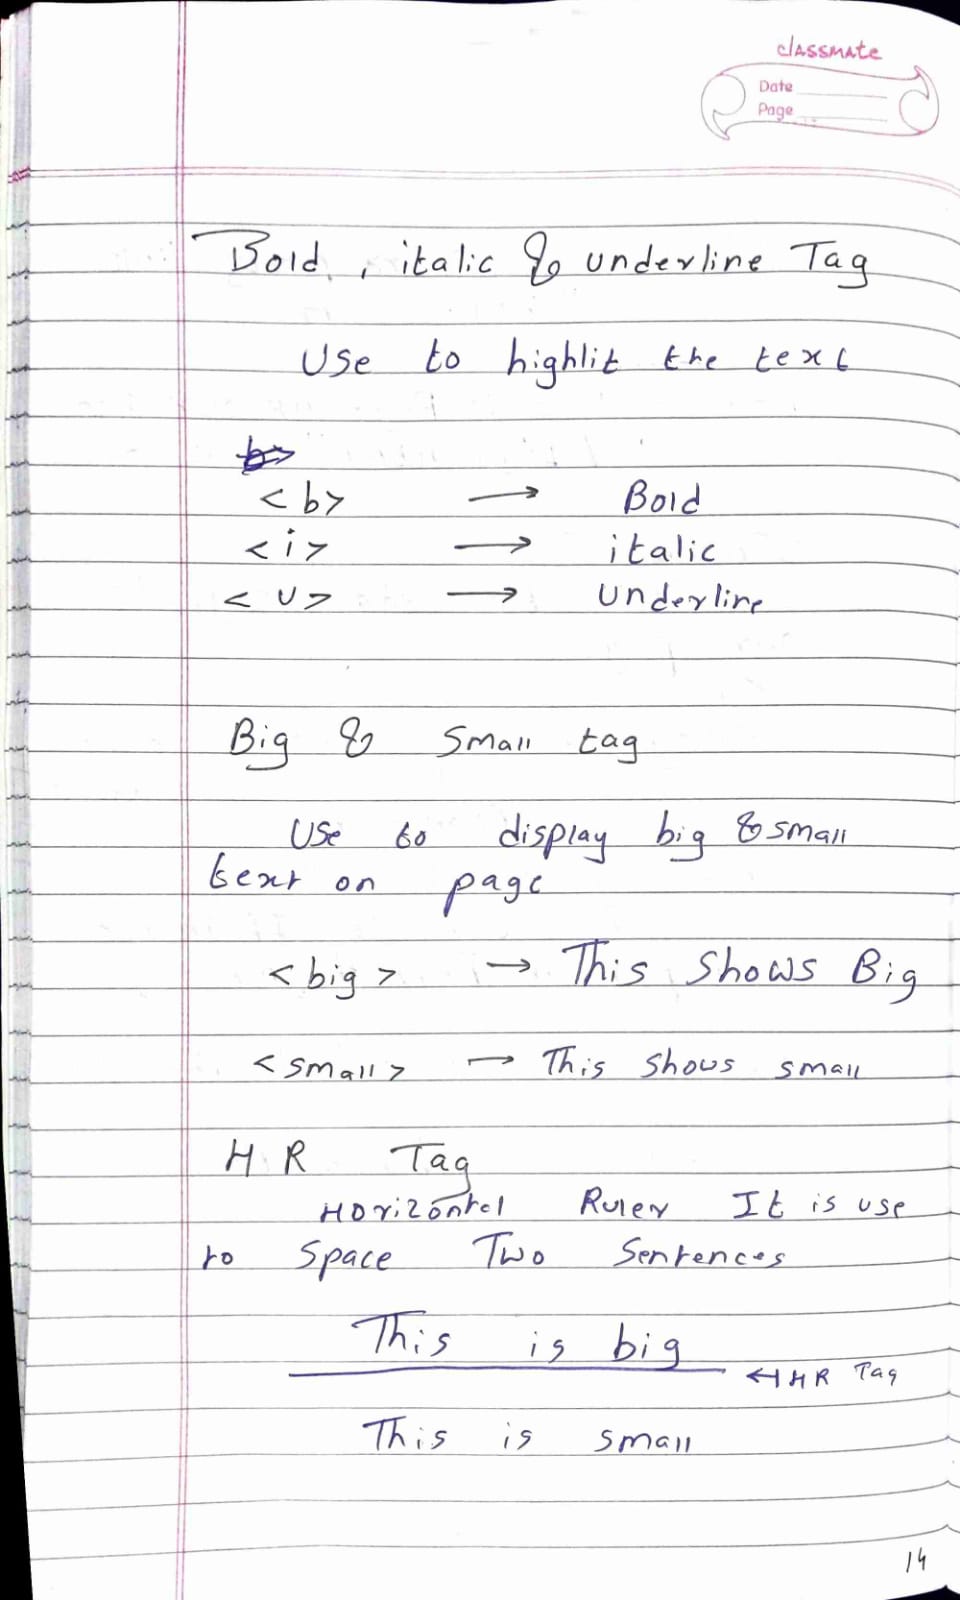 classmate
Date
Page
Bold, italic & underline Tag
Use to highlit the text
<b> → Bold
<i> → italic
<u> → underline
Big & small tag
Use to display big & small
text on page
<big> → This shows Big
<small> → This shows small
HR Tag
Horizontel Ruler It is use
to space Two sentences
This is big
← HR Tag
This is small
14